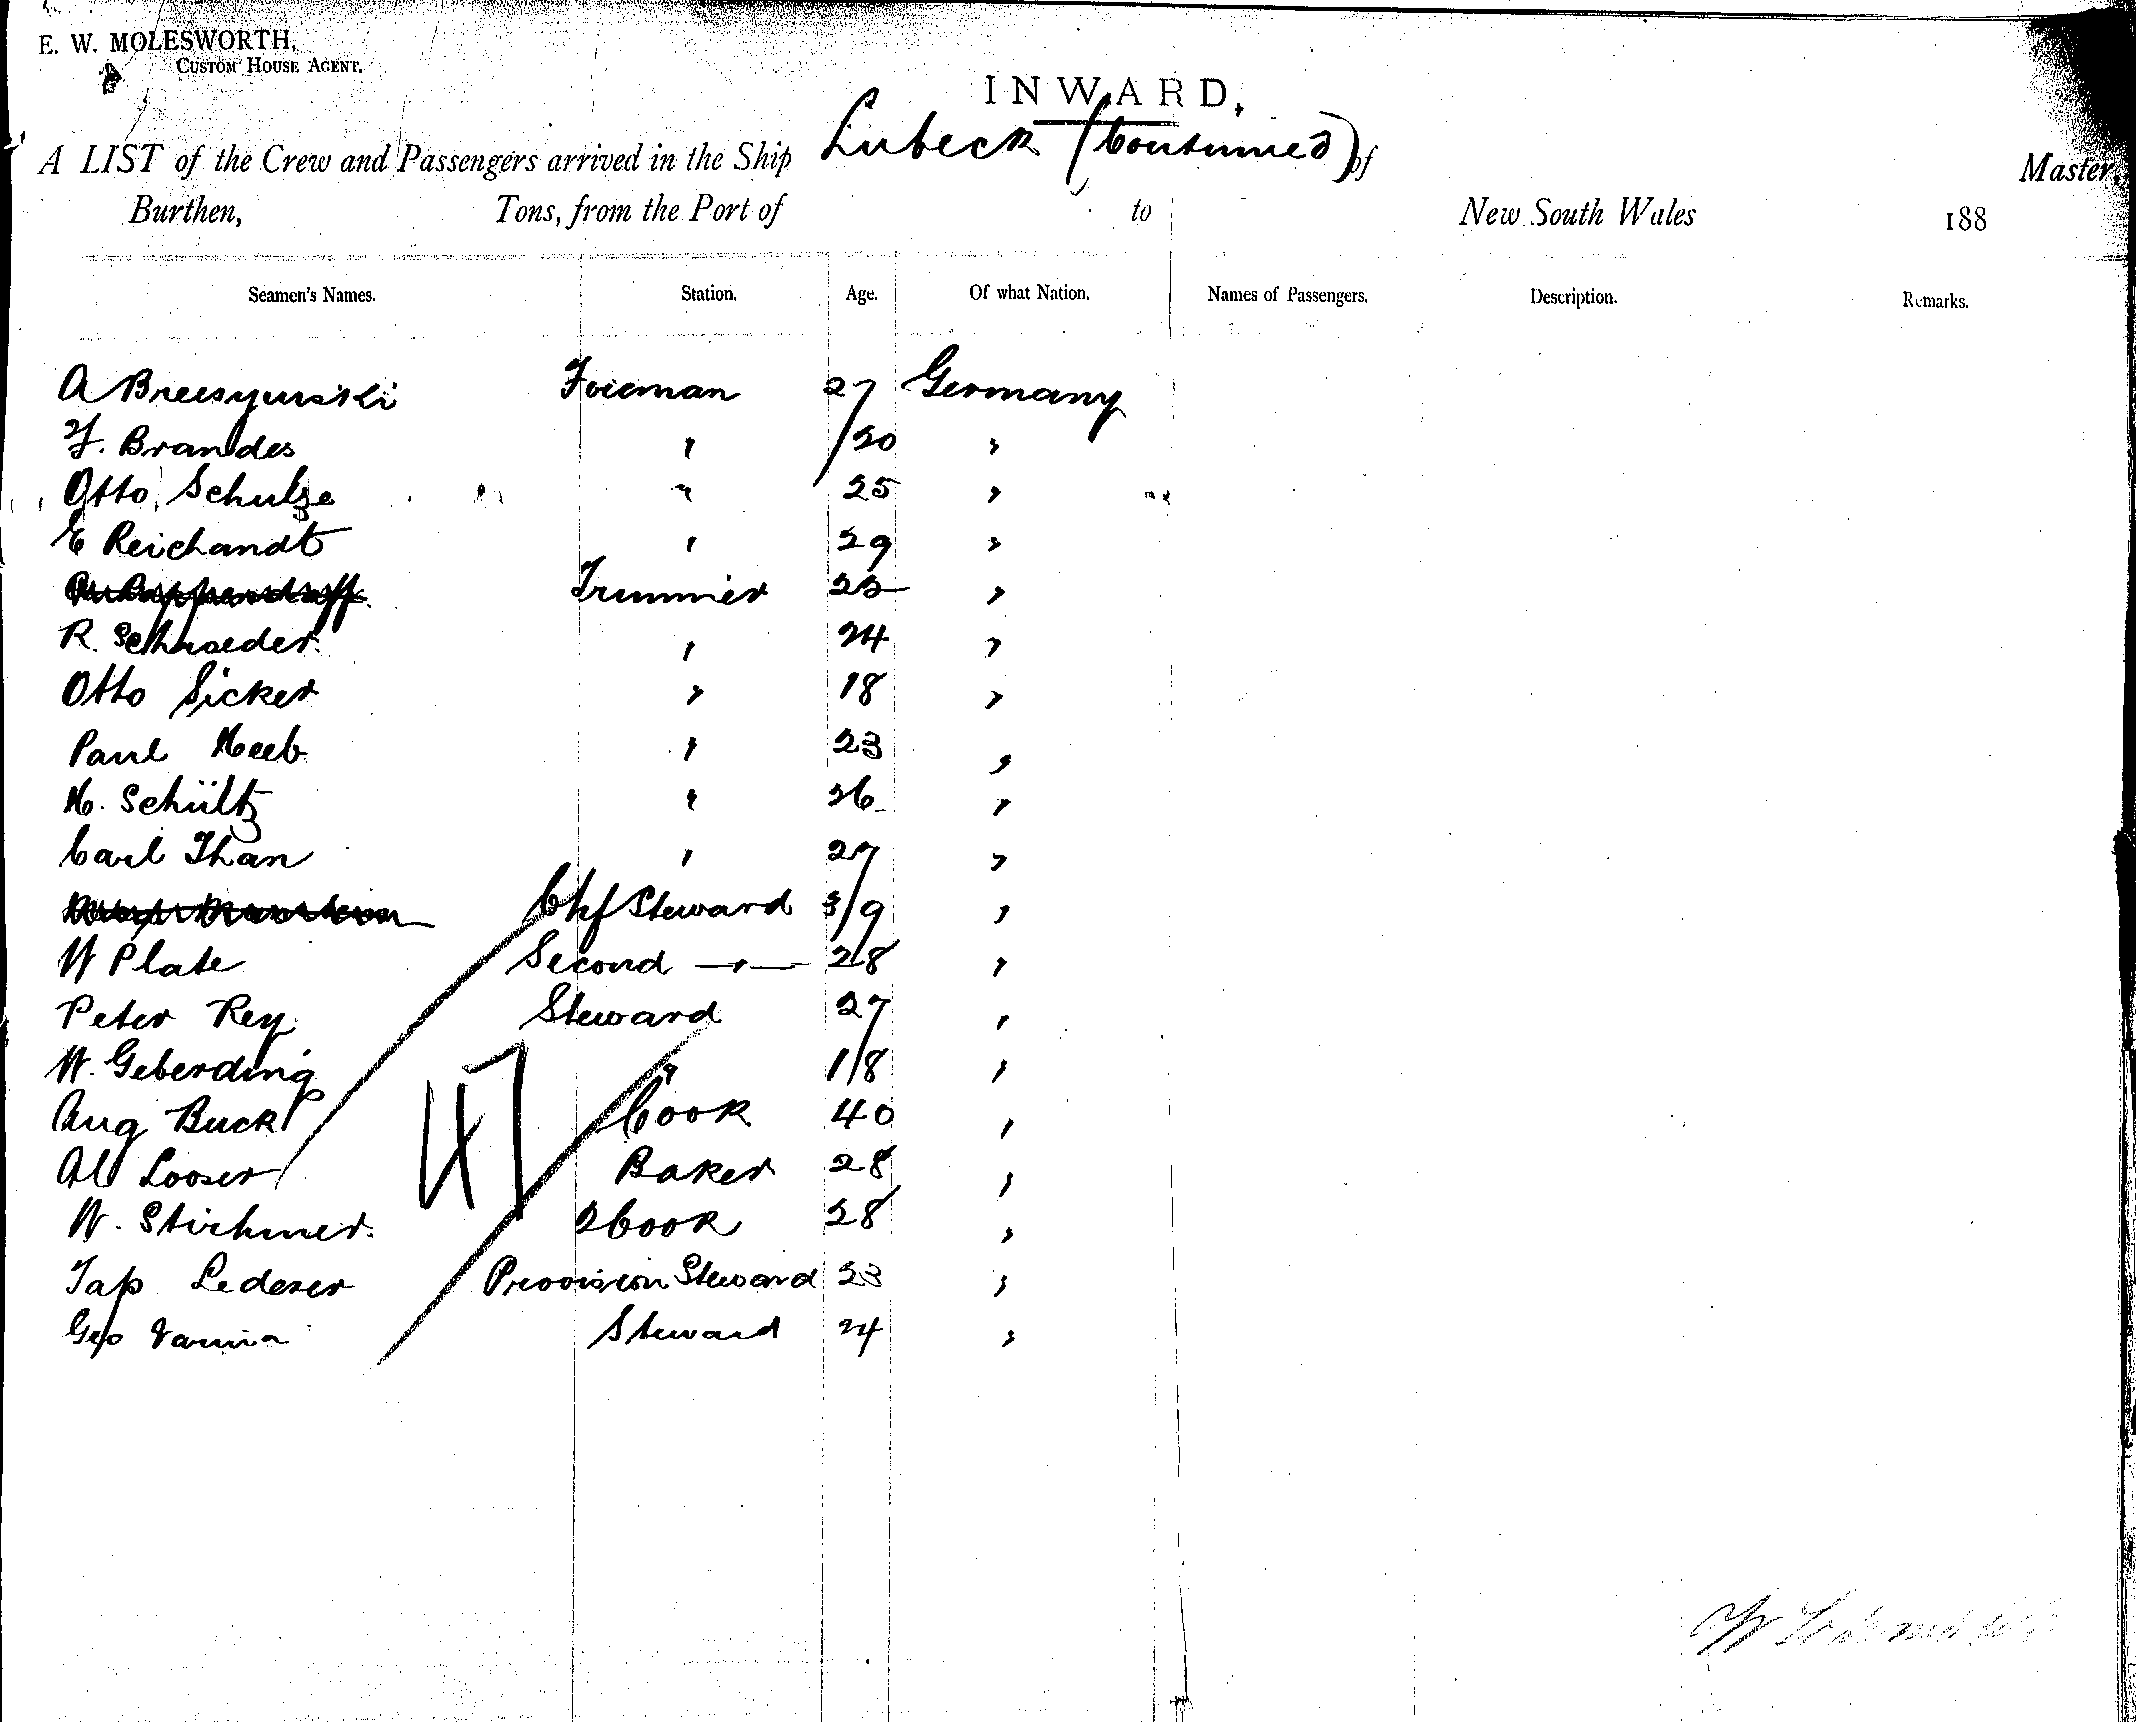 E. W. MOLESWORTH,
CUSTOM HOUSE AGENT.
INWARD,
A LIST of the Crew and Passengers arrived in the Ship Lubeck (Continued) of Master,
Burthen, Tons, from the Port of to New South Wales 188
Seamen's Names. Station. Age. Of what Nation. Names of Passengers. Description. Remarks.
A Fireman 27 Germany
F. Brandes " 20 "
Otto Schulze " 25 "
E Reichandt " 29 "
Trimmer 25 "
R. Schroeder " 24 "
Otto Sicker " 18 "
Paul Heeb " 23 "
H. Schültz " 26 "
Carl Than " 27 "
Chf Steward 39 "
W Plate Second —"— 28 "
Peter Rey Steward 27 "
W. Geberding " 18 "
Aug Buck Cook 40 "
Al Looser Baker 28 "
W. Stirhmer. 2 Cook 28 "
Lederer Provision Steward 23 "
Geo Steward 24 "
47